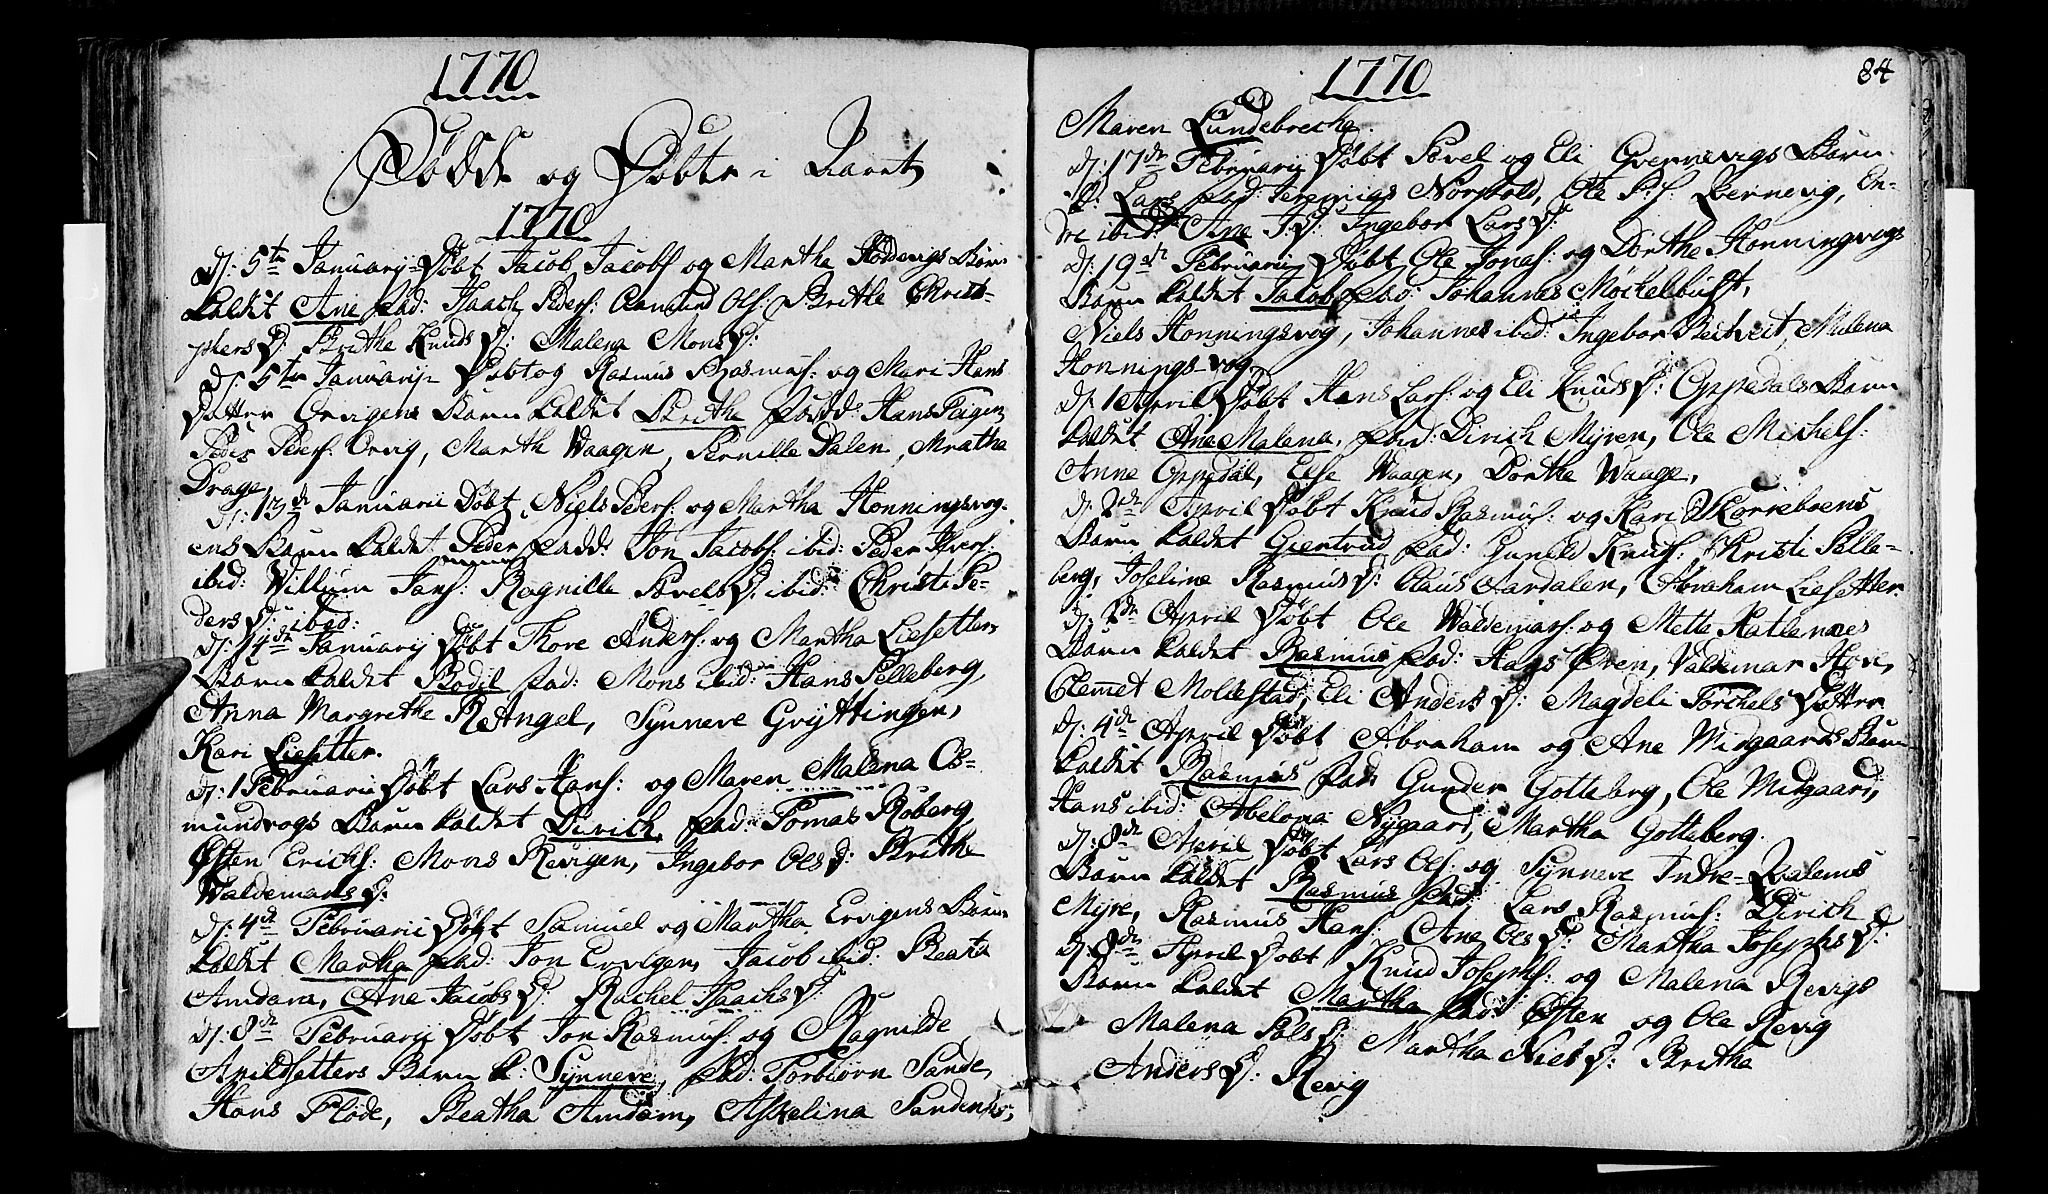 1770
Fødde og Døbte i Aaret
1770
D: 5te Januarij Døbt Jacob Jacobs: og Martha Høddevigs Barn
kaldet Ane Fad: Isach Peders: Aamund Ols: Brithe Christ-
phers D: Brithe Knuds D: Malena Mons D:
D: 5te Januarij Døbt og Rasmus Rasmus: og Mari Hans
Datter Orvigens Barn kaldet Brithe Fadd: Hans Teigen
Peder Peders: Orvig, Marth Waagen, Pernille Dalen, Mratha
Drage
D: 13de Januarii Døbt Niels Peders: og Martha Honningsvog-
ens Barn kaldet Peder Fadd: Jon Jacobs: ibid: Peder Ivers:
ibid: Willum Jans: Ragnille Povels D. ibid: Christi Pe-
ders D: ibid:
D: 14de Januarij Døbt Thore Anders: og Martha Liesetters
Barn kaldet Bodil Fad: Mons ibid: Hans Selleberg,
Anna Margrethe ReAngel, Synneve Gryttingen,
Kari Liesetter.
D: 1 Februarii Døbt Lars Hans: og Maren Malena Os-
mundvogs Barn kaldet Dirich, Fad: Tomas Roberg
Østen Erichs: Mons Revigen, Ingebor Ols D: Brithe
Waldemans D:
D: 4de Februarii Døbt Samuel og Martha Ervigens Barn
kaldet Martha Fad: Jon Ervigen, Jacob ibid: Beata
Amdam, Ane Jacobs D: Rachel Isachs D:
D: 8de Februarij Døbt Jon Rasmus: og Ragnilde
Arildsetters Barn k: Synneve, Fad: Torbiørn Sande,
Hans Flode, Beatha Amdam, Askelina Sandenes,
1770
84
Maren Lundebrecha.
D: 17de Februarii Døbt Povel og Eli Gvernevigs Barn
k: Lars Fad: Jeremias Norfold, Ole P: S: Bernevig, En-
dre ibid: Ane J: D: Ingebor Lars D:
D: 19de Februarii Døbt Ole Jonas: og Dorthe Honningvogs
Barn kaldet Jacob Fad: Johannes Møckelbust,
Niels Honningsvog, Johannes ibid: Ingebor Beitveit, Malena
Honningsvog,
D: 1 April Døbt Hans Lars: og Eli Knuds D: Oppedals Barn
kaldet Ane Malena, Fad: Dirich Myren, Ole Michels:
Anne Oppedal, Else Waagen, Dorthe Waage,
D: 2de April Døbt Knud Rasmus: og Kari Skorreboens
Barn kaldet Giertrud Fad: Gunild Knus: Kristi Selle-
berg, Joseline Rasmus D: Claus Aardalen, Abraham Liesetter
D: 2de April Døbt Ole Waldemars: og Mette Hatlenæs
Barn kaldet Rasmus Fad: Hags Øren, Valdemar Hove,
Clemmet Moldestad, Eli Anders D: Magdeli Torchels Datter
D: 4de April Døbt Abraham og Ane Midgaards Barn
kaldet Rasmus Fad: Gunder Gotteberg, Ole Midgaard,
Hans ibid: Abelona Nygaard, Martha Gotteberg.
D: 8de April Døbt Lars Ols: og Synneve Indre-Dalens
Barn kaldet Rasmus Fad: Lars Rasmus: Dirich
Myre, Rasmus Hans: Ane Ols D: Martha Josephs D:
D: 8de April Døbt Knud Josephs: og Malena Revigs
Barn kaldet Martha Fad: Østen og Ole Revig
Malena Pols D: Martha Niels D: Britha
Anders D: Revig